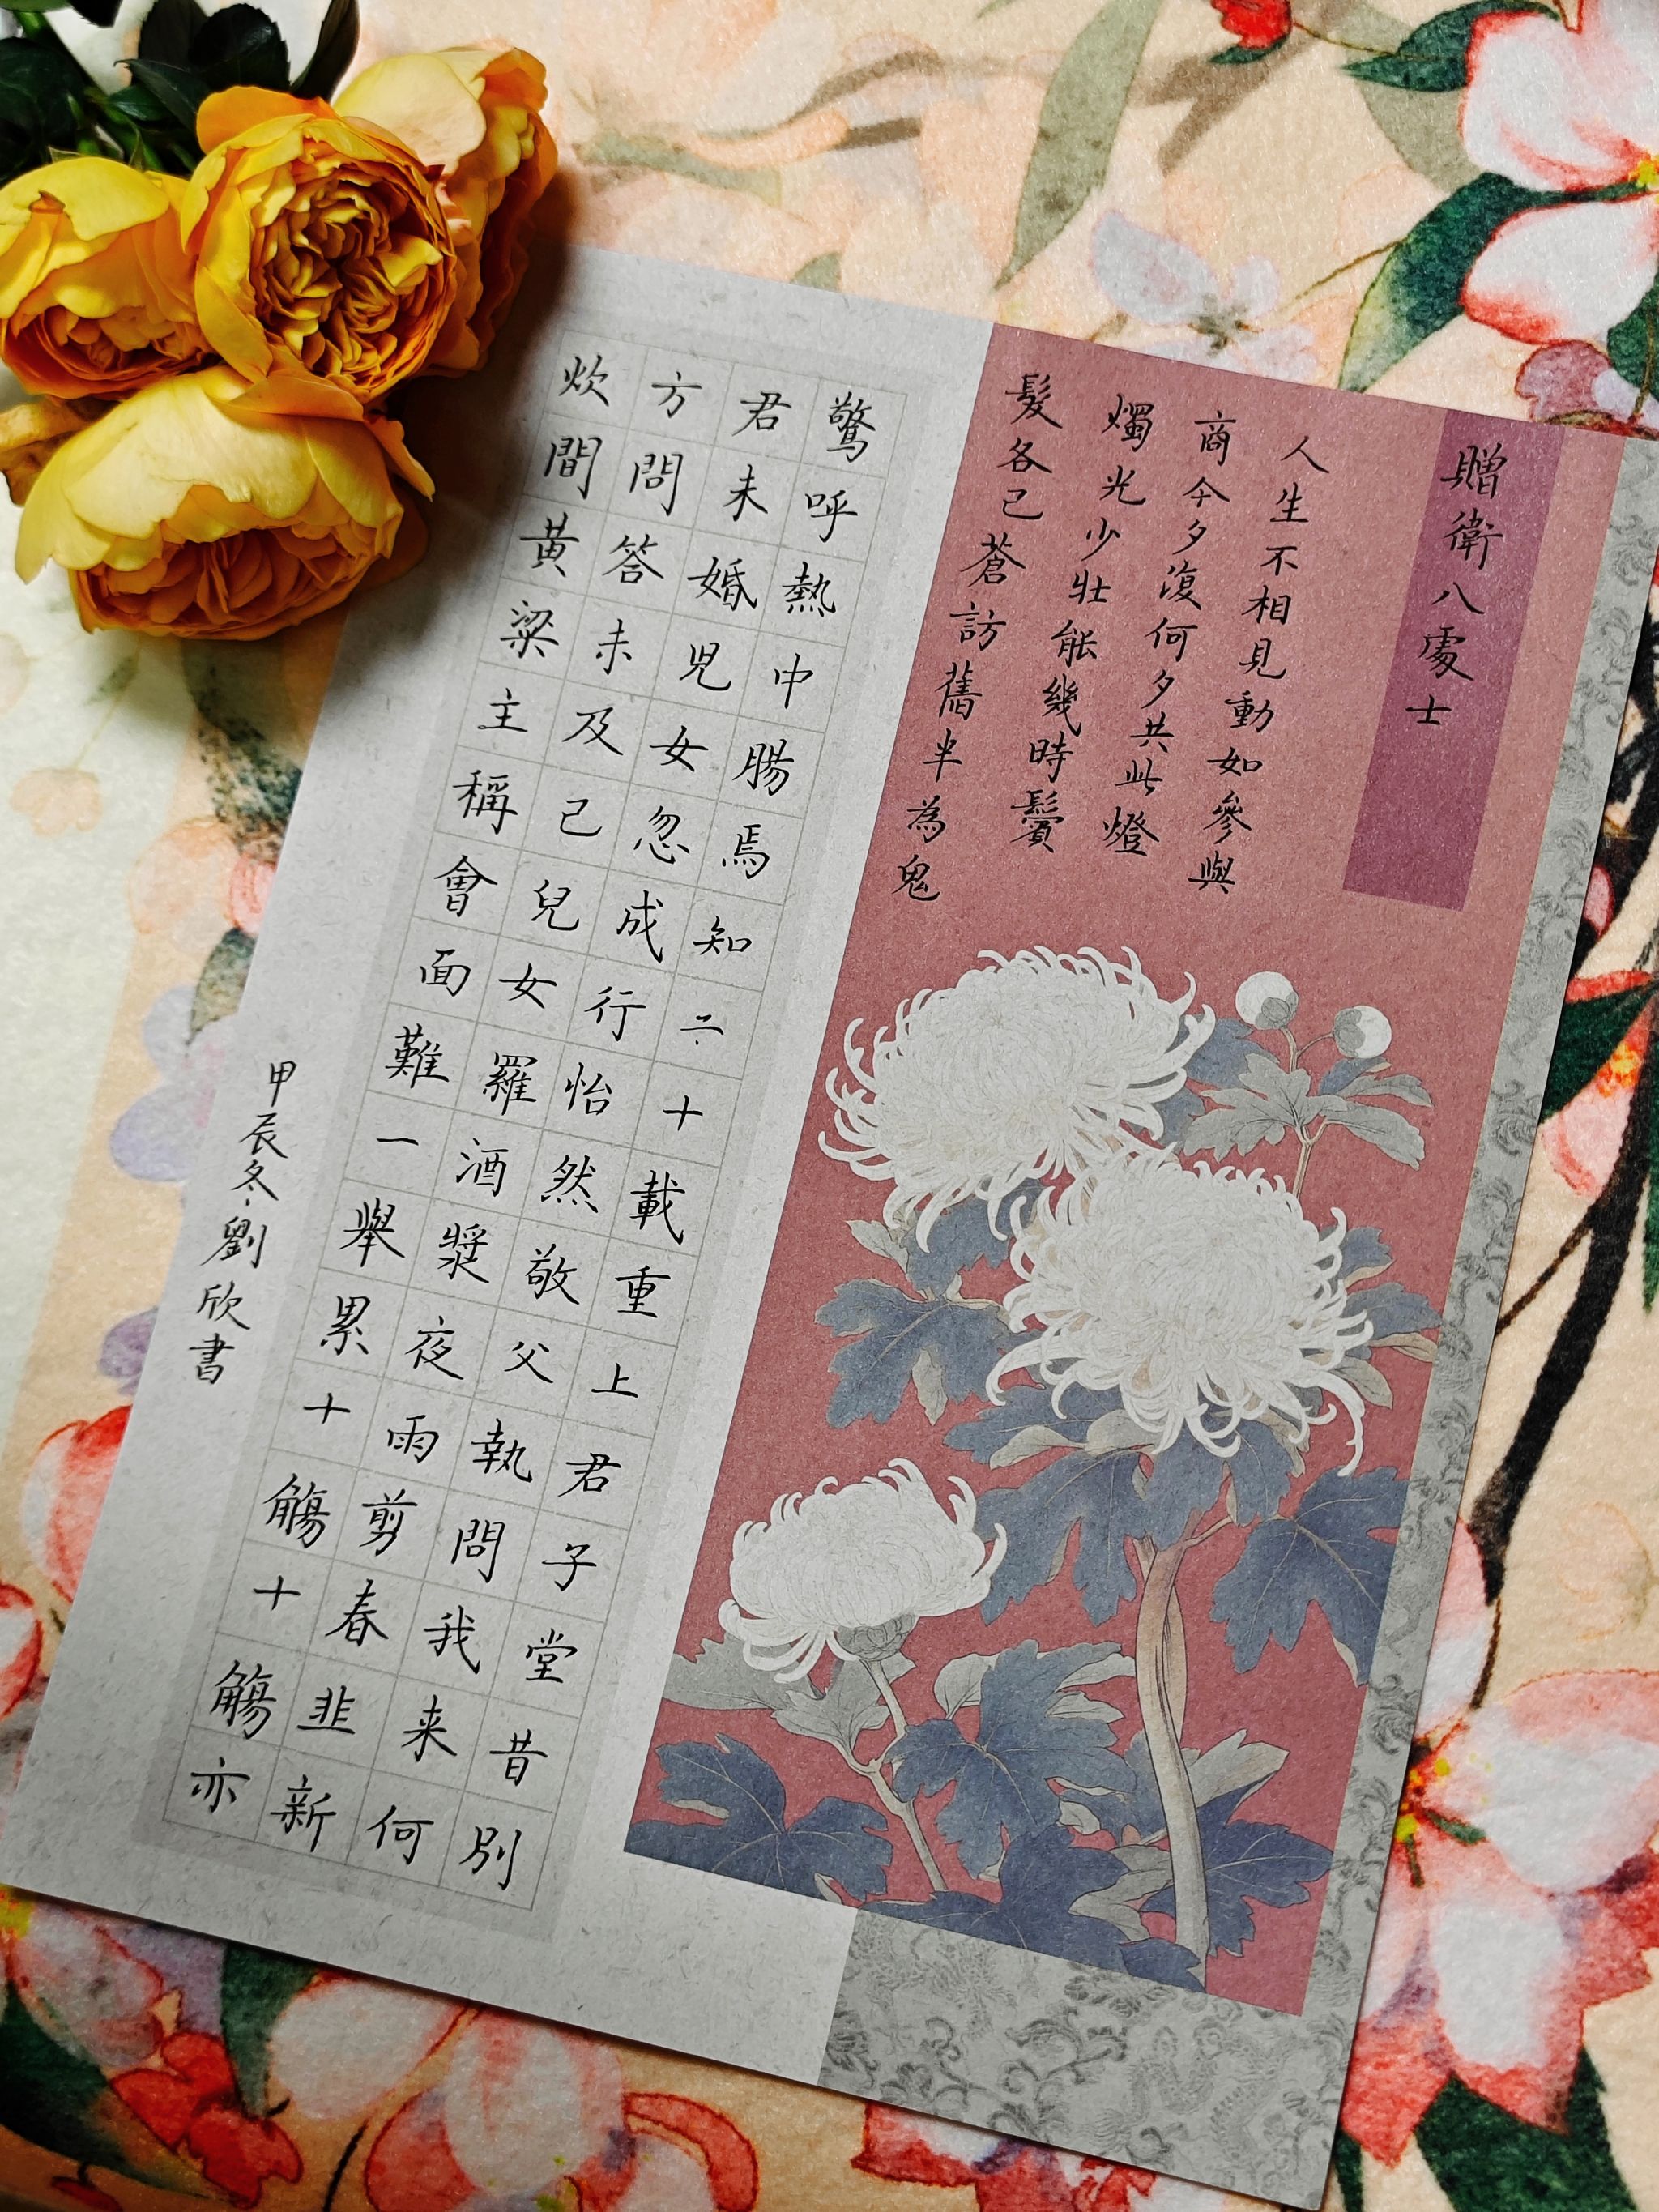 贈衛八處士
人生不相見動如參與
商今夕復何夕共此燈
燭光少壯能幾時鬢
髮各已蒼訪舊半為鬼
驚呼熱中腸焉知二十載重上君子堂昔別
君未婚兒女忽成行怡然敬父執問我来何
方問答未及已兒女羅酒漿夜雨剪春韭新
炊間黃粱主稱會面難一舉累十觴十觴亦
甲辰冬劉欣書